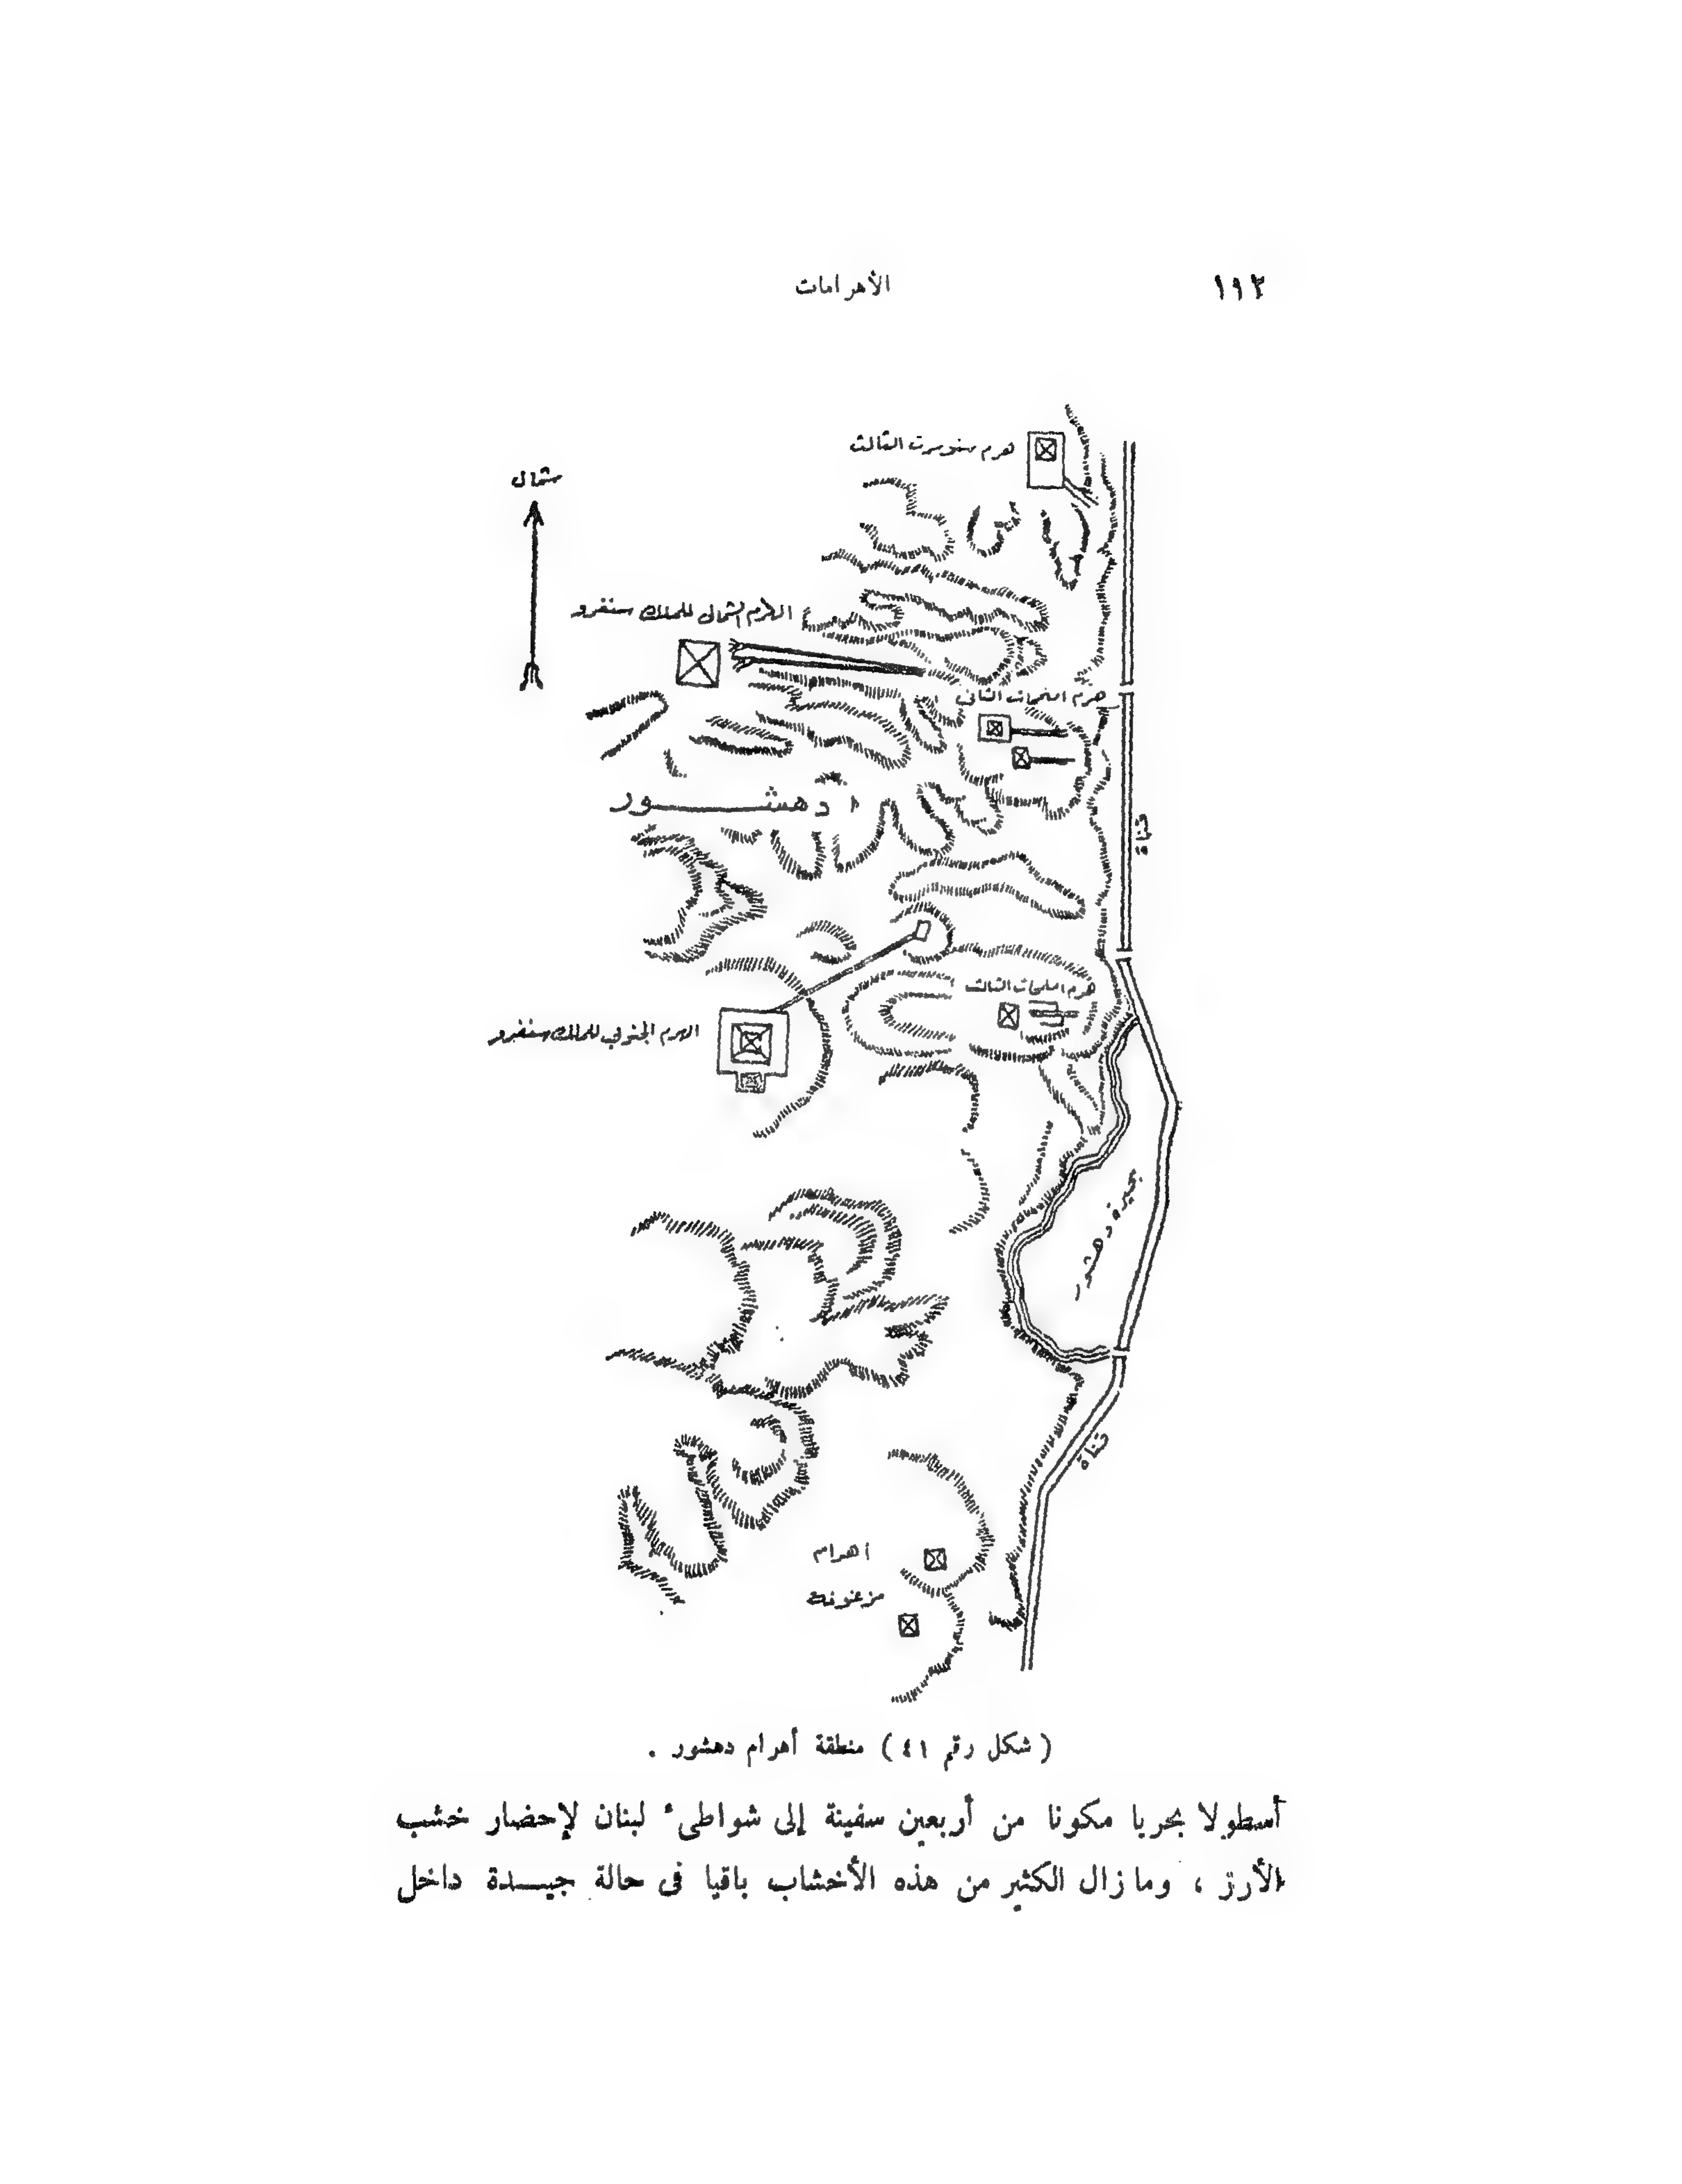 ١١٢
الأهرامات
هرم سنوسرت الثالث
شمال
الهرم الشمالى للملك سنفرو
هرم امنمحات الثانى
دهشــــور
قناة
هرم امنمحات الثالث
الهرم الجنوبي للملك سنفرو
بحيرة دهشور
قناة
اهرام
مزغونة
( شكل رقم ٤١ ) منطقة أهرام دهشور .
أسطولا بحريا مكونا من أربعين سفينة إلى شواطىء لبنان لإحضار خشب
الأرز ، وما زال الكثير من هذه الأخشاب باقيا فى حالة جيــدة داخل